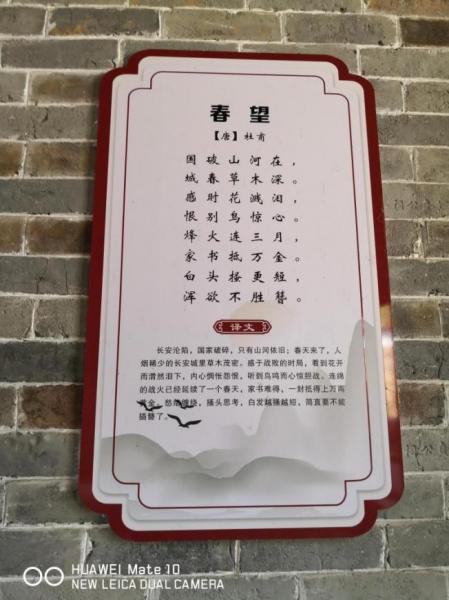 春望
【唐】杜甫
国破山河在，
城春草木深。
感时花溅泪，
恨别鸟惊心。
烽火连三月，
家书抵万金。
白头搔更短，
浑欲不胜簪。
译文
长安沦陷，国家破碎，只有山河依旧；春天来了，人
烟稀少的长安城里草木茂密。感于战败的时局，看到花开
而潸然泪下，内心惆怅怨恨，听到鸟鸣而心惊胆战。连绵
的战火已经延续了一个春天，家书难得，一封抵得上万两
黄金。愁绪缠绕，搔头思考，白发越搔越短，简直要不能
插簪了。
HUAWEI Mate 10
NEW LEICA DUAL CAMERA